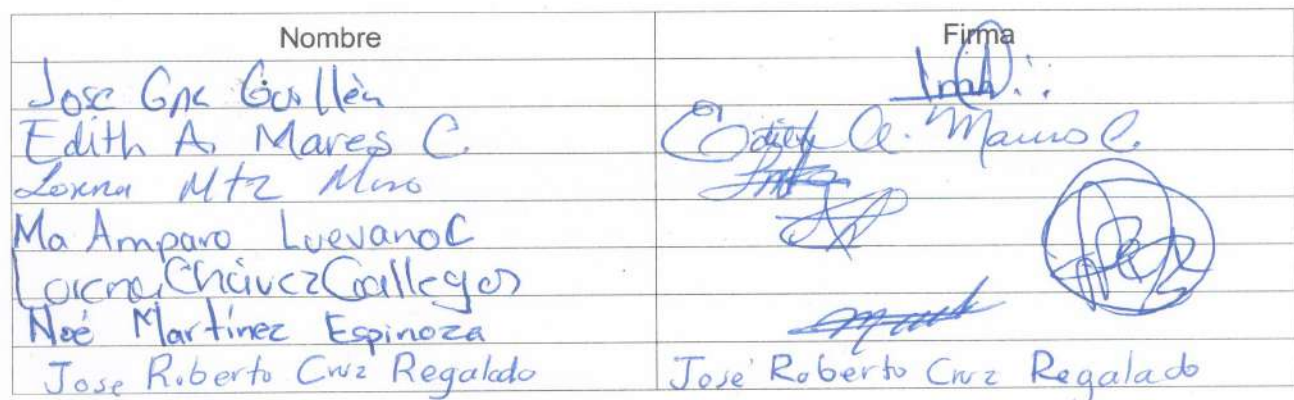 Nombre Firma
Jose Gpe Guillén
Edith A. Mares C. Edith A. Mares C.
Lorena Mtz
Ma Amparo Luevano C
Lorena Chávez Gallegos
Noé Martínez Espinoza
Jose Roberto Cruz Regalado José Roberto Cruz Regalado